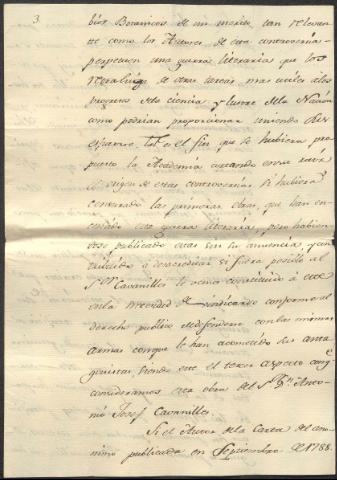 3.
bios Botanicos de un merito tan relevan
te como los Autores de esta controversia
perpetuen una guerra literaria que los
de otras tareas mas utiles a los
progresos de la ciencia y lustre de la Nacion
como podrian proporcionar uniendo sus
esfuerzos. Tal es el fin que se hubiera pro
puesto la Academia cortando en su raiz
el origen de estas controversias, si hubiera
censurado las primeras obras, que han en
cendido esta guerra literaria, pero habien
dose publicado estas sin su anuencia, y con
à desacreditar si fuera posible al
Sr. Cavanilles le vemos constituido à este
en la necesidad de vindicarse conforme al
derecho publico defenderse con las mismas
armas con que le han acometido sus anta
gonistas, siendo este el tercer aspecto con q.e
consideramos esta obra del Sr. Dn. Anto
nio Josef Cavanilles.
Si el Autor de la Carta del ano
nimo publicada en Septiembre de 1788.